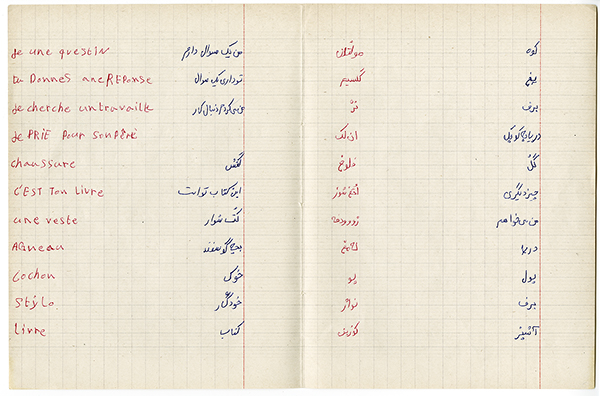 Je une questin من یک سوال دارم
tu Donnes ane REPonse تو داری یک سوال
Je cherche un travaille من می گردم دنبال کار
Je PRIE Pour SonPÈRE
chaussure کفش
C'EST Ton Livre این کتاب تو است
une veste کت شوار
AGneau بچه گوسفند
Cochon خوک
Stylo خودکار
Livre کتاب
کوه
گلسیم یخ
برف
ان لک دریاچه کوچک
گل
چیز دیگری
من می خواهم
دریا
پو پول
برف
کوزین آشپز